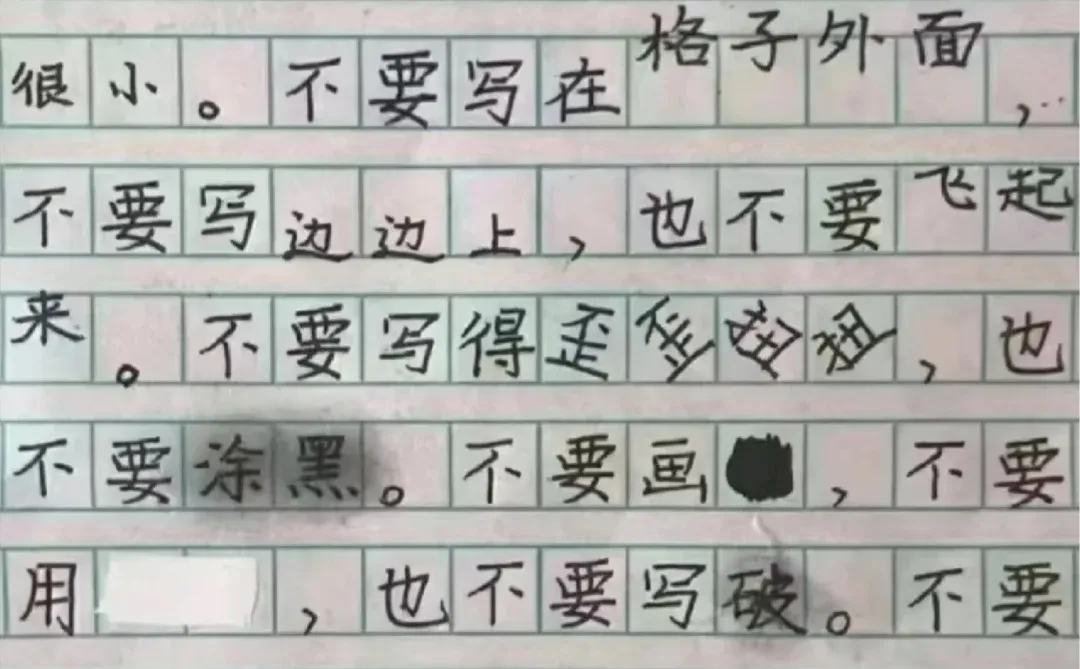 很小。不要写在格子外面，
不要写边边上，也不要飞起
来。不要写得歪歪扭扭，也
不要涂黑。不要画，不要
用，也不要写破。不要